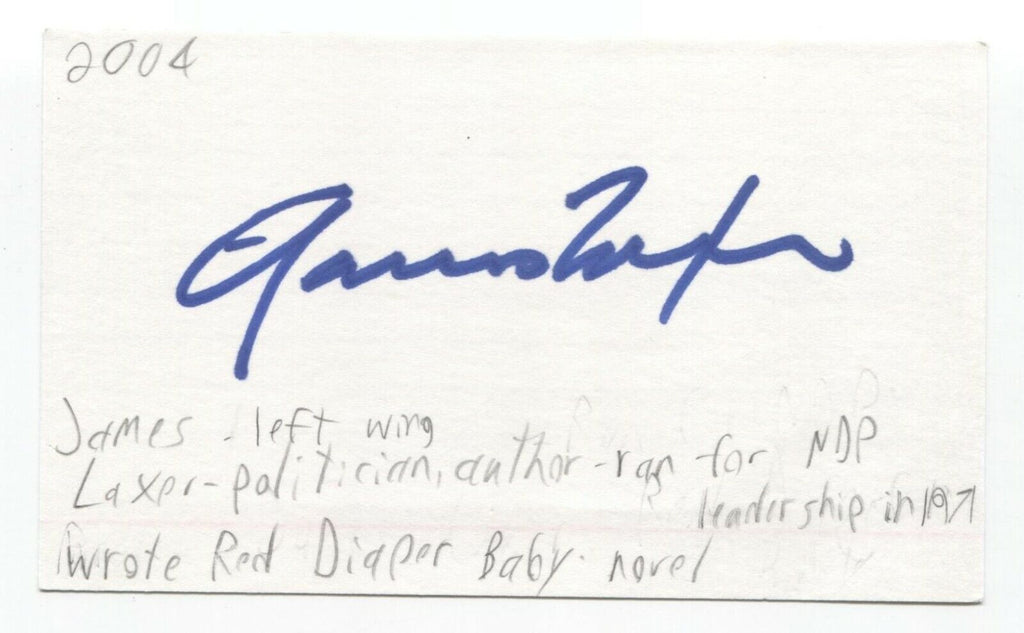 2004
James Laxer
James - left wing
Laxer - politician, author - ran for NDP
leadership in 1971
wrote Red Diaper Baby - novel